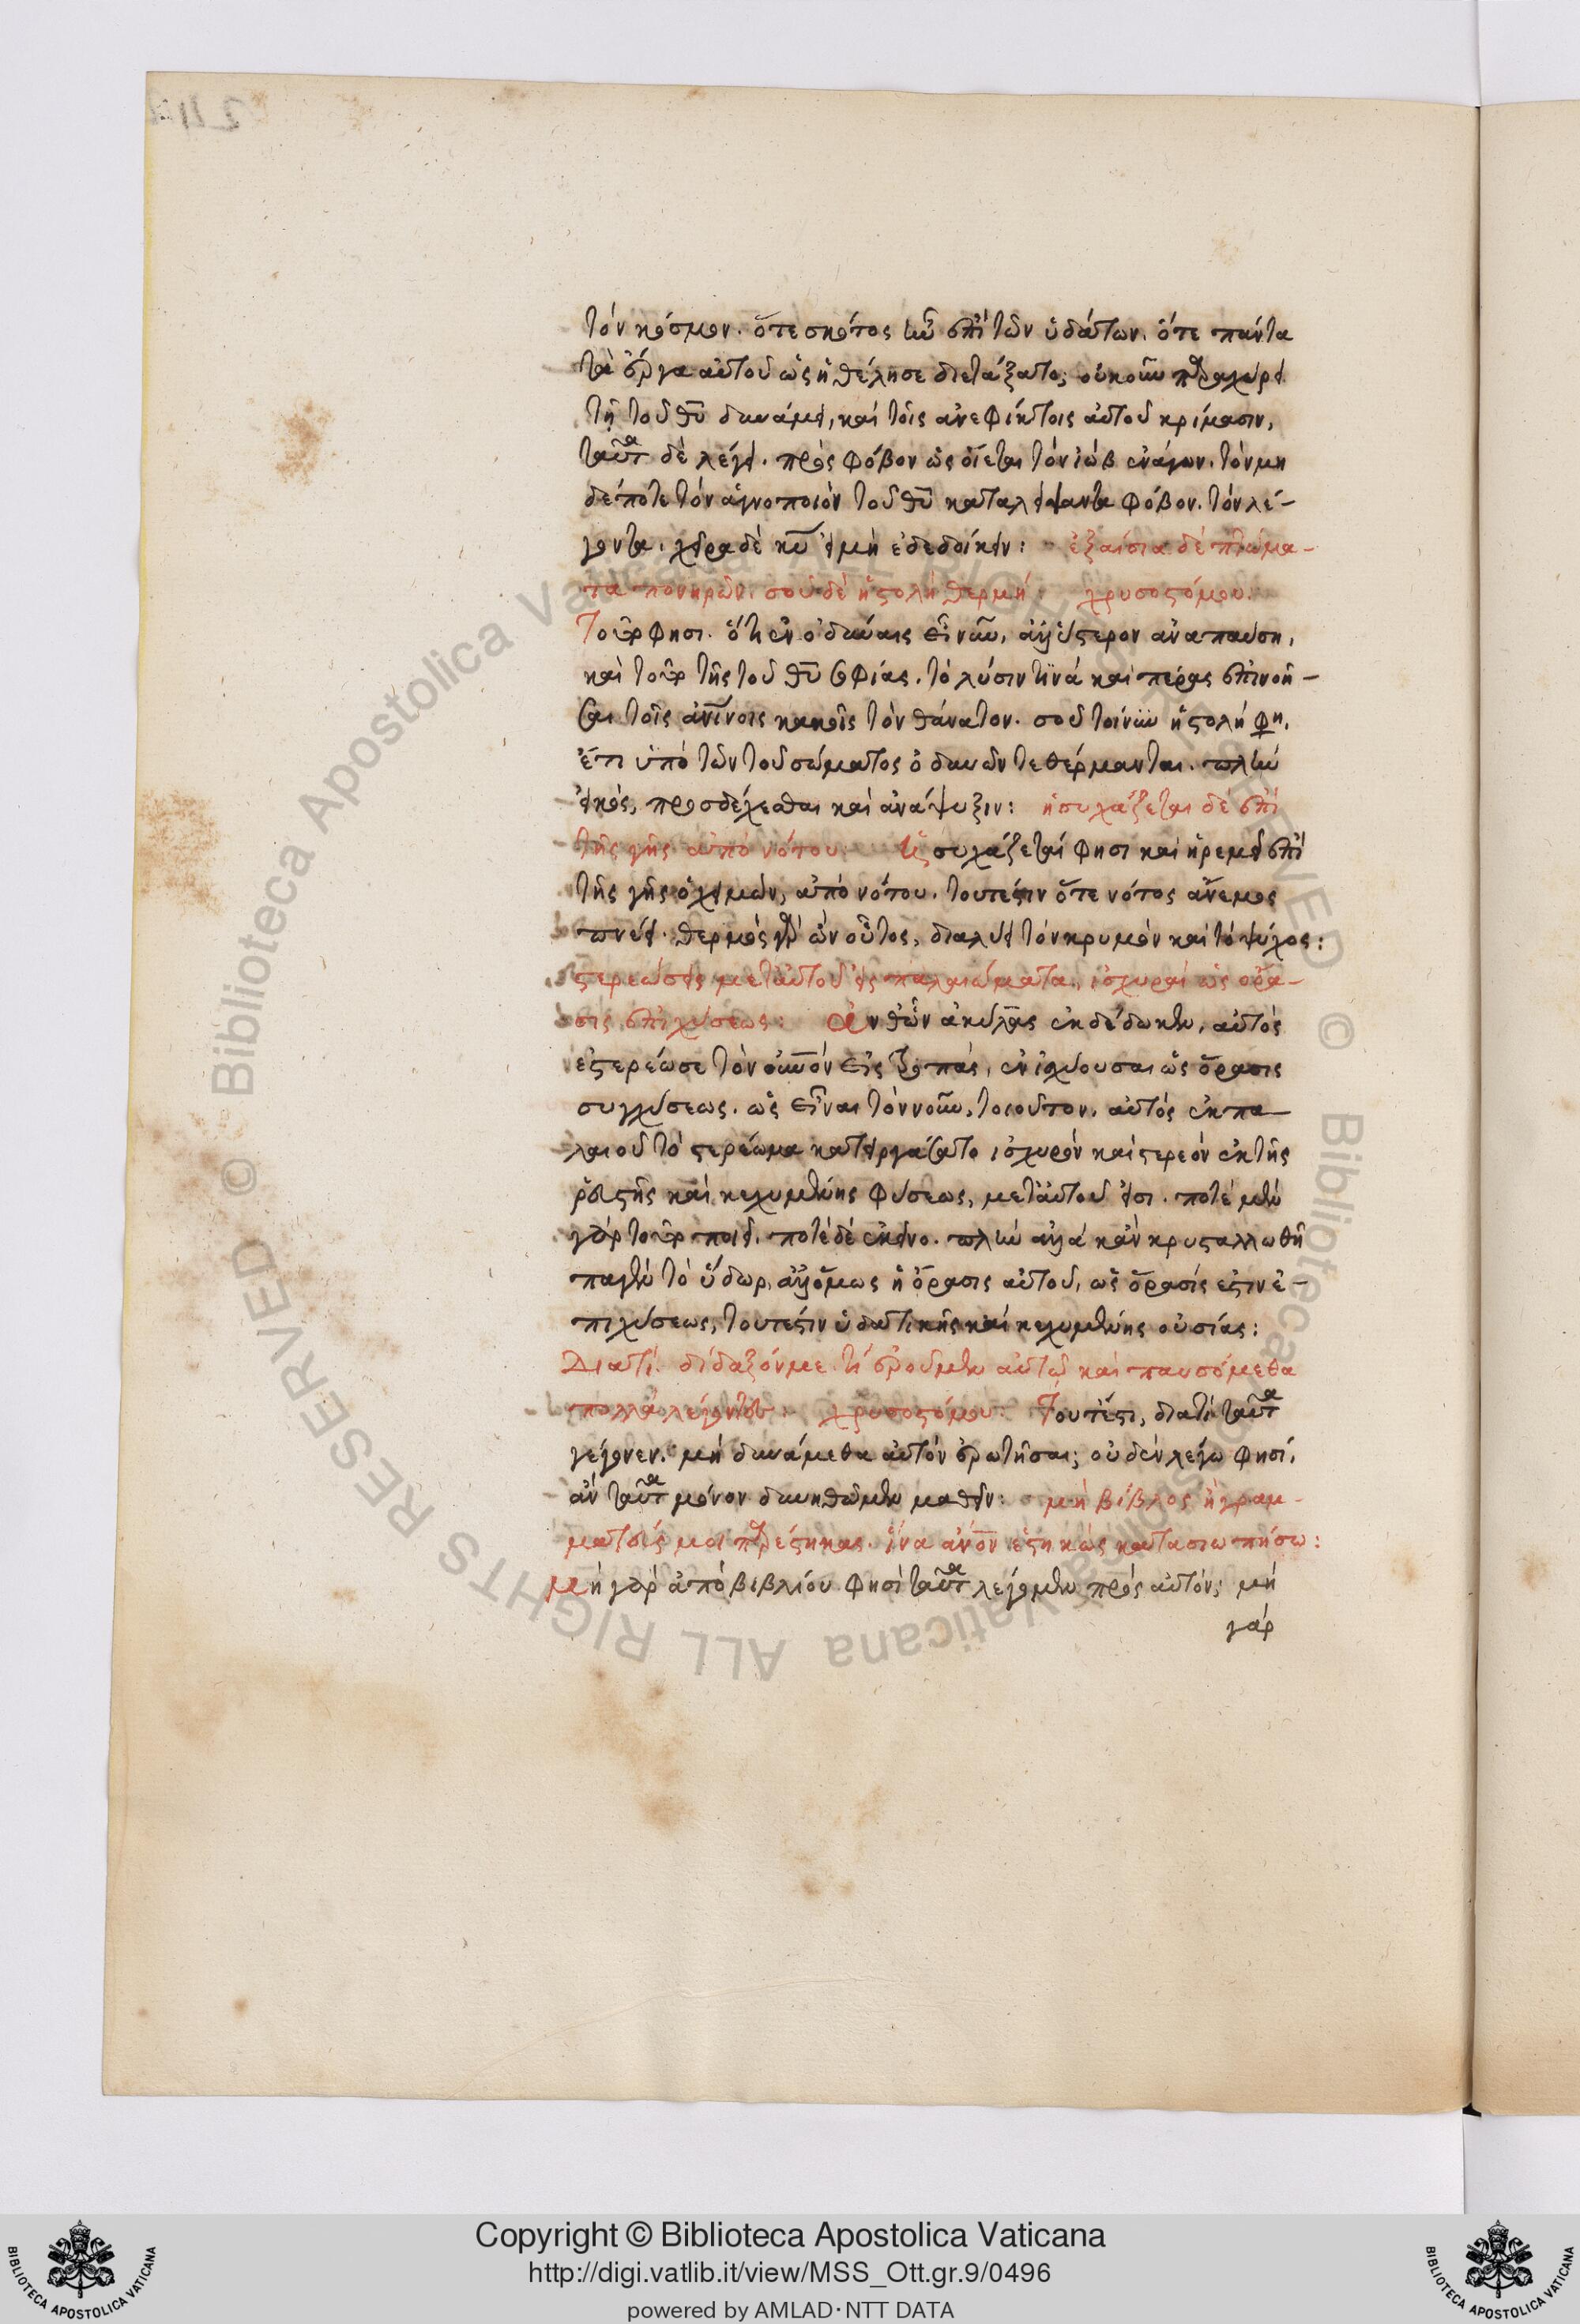 τὸν κόσμον. ὅτε σκότος ἦν ἐπὶ τῶν ὑδάτων. ὅτε πάντα
τὰ ἔργα αὐτοῦ ὡς ἠθέλησε διετάξατο; οὐκοῦν παραχώρει
τῇ τοῦ θυ δυνάμει, καὶ τοῖς ἀνεφίκτοις αὐτοῦ κρίμασιν,
ταῦτα δὲ λέγει. πρὸς φόβον ὡς οἴεται τὸν ἰὼβ ἐνάγων. τὸν μη
δέποτε τὸν ἁγνοποιὸν τοῦ θυ καταλείψαντα φόβον. τὸν λέ-
γοντα. χεῖρα δὲ κυ εἰ μὴ ἐδεδοίκειν: ἐξαίσια δὲ πτώμα-
τα πονηρῶν. σοῦ δὲ ἡ στολὴ θερμή: χρυσοστόμου.
Τοῦτο φησι. ὅτι ἐν ὀδύναις εἶναι, ἀλλ' ὕστερον ἀναπαύση,
καὶ τοῦτο τῆς τοῦ θυ σοφίας. τὸ λύσιν τινὰ καὶ πέρας ἐπινοῆ-
σαι τοῖς ἀνίνοις κακοῖς τὸν θάνατον. σοῦ τοίνυν ἡ στολή φη,
ἔτι ὑπὸ τῶν τοῦ σώματος ὀδυνῶν τεθέρμανται. πλὴν
εἰκὸς, προσδέχεσθαι καὶ ἀνάψυξιν: ἡσυχάζεται δὲ ἐπὶ
τῆς γῆς ἀπὸ νότου: Ἡσυχάζεταί φησι καὶ ἠρεμεῖ ἐπὶ
τῆς γῆς ὁ χειμών, ἀπὸ νότου. τουτέστιν ὅτε νότος ἄνεμος
πνέει. θερμὸς γὰρ ὢν οὗτος, διαλύει τὸν κρυμὸν καὶ τὸ ψύχος:
στερεώσεις μετ' αὐτοῦ εἰς παλαιώματα, ἰσχυραὶ ὡς ὅρα-
σις ἐπιχύσεως: ἀνθ' ὧν ἀκύλας ἐκδέδωκεν, αὐτὸς
ἐστερέωσε τὸν οὐνὸν εἰς ῥοπάς, ἐνισχύουσαι ὡς ὅρασις
συγχύσεως. ὡς εἶναι τὸν νοῦν, τοιοῦτον. αὐτὸς ἐκ πα-
λαιοῦ τὸ στερέωμα κατειργάσατο ἰσχυρὸν καὶ στερεὸν ἐκ τῆς
ῥευστῆς καὶ κεχυμένης φύσεως, μετ' αὐτοῦ εἰσι. ποτὲ μὲν
γὰρ τοῦτο ποιεῖ. ποτὲ δὲ ἐκεῖνο. πλὴν ἀλλὰ κἂν κρυσταλλωθῆ
παγὲν τὸ ὕδωρ, ἀλλ' ὅμως ἡ ὅρασις αὐτοῦ, ὡς ὅρασίς ἐστιν ἐ-
πιχύσεως, τουτέστιν ὑδατικῆς καὶ κεχυμένης οὐσίας:
Διατί. δίδαξόν με. τί ἐροῦμεν αὐτῷ καὶ παυσόμεθα
πολλὰ λέγοντες: χρυσοστόμου: Τουτέστι, διατί ταῦτα
γέγονεν. μὴ δυνάμεθα αὐτὸν ἐρωτῆσαι; οὐδὲν λέγω φησί,
ἀν ταῦτα μόνον δυνηθῶμεν μαθεῖν: μὴ βίβλος ἢ γραμ-
ματεύς μοι παρέστηκας. ἵνα ἀνον ἑστηκὼς κατασιωπήσω:
Μὴ γὰρ ἀπὸ βιβλίου φησὶ ταῦτα λέγομεν πρὸς αὐτόν; μὴ
γάρ
Copyright © Biblioteca Apostolica Vaticana
http://digi.vatlib.it/view/MSS_Ott.gr.9/0496
powered by AMLAD·NTT DATA